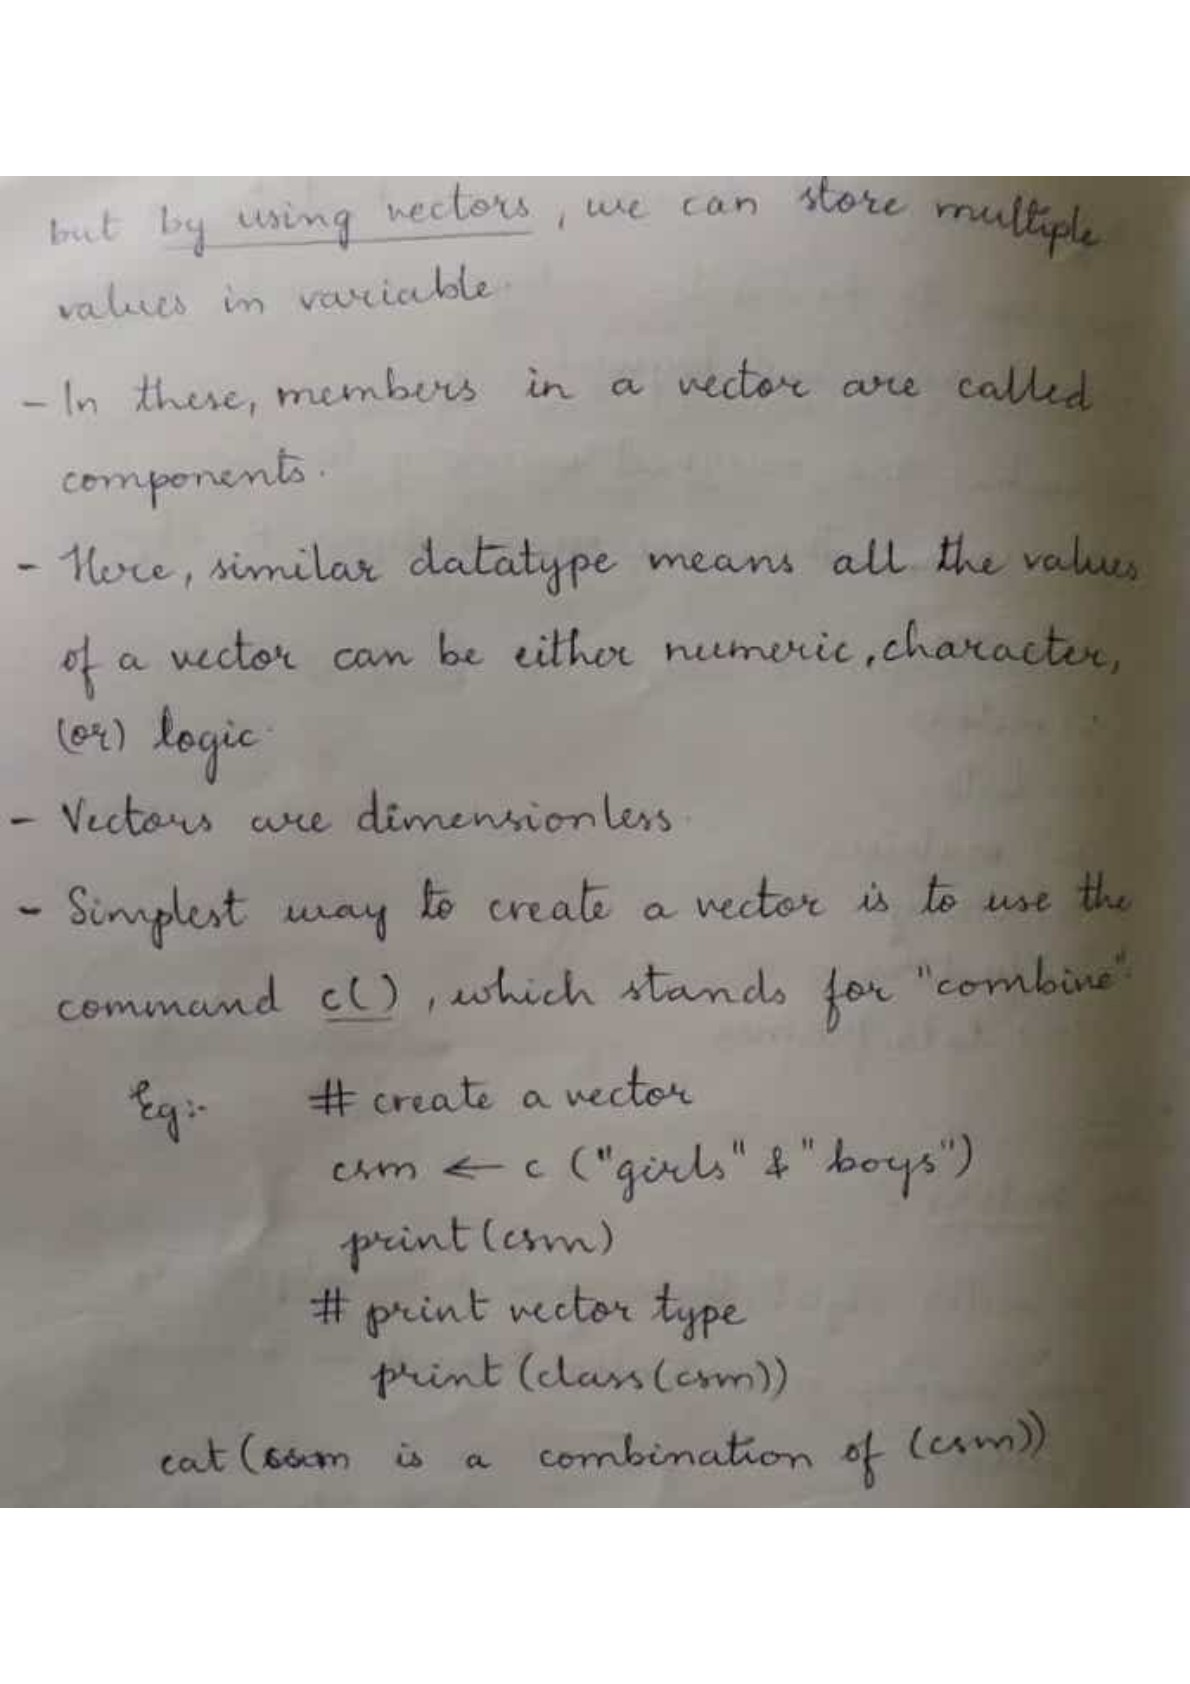 but by using vectors, we can store multiple
values in variable.
- In these, members in a vector are called
components.
- Here, similar datatype means all the values
of a vector can be either numeric, character,
(or) logic.
- Vectors are dimensionless.
- Simplest way to create a vector is to use the
command c(), which stands for "combine".
Eg:- # create a vector
csm ← c ("girls" & "boys")
print(csm)
# print vector type
print (class(csm))
cat (csm is a combination of (csm))